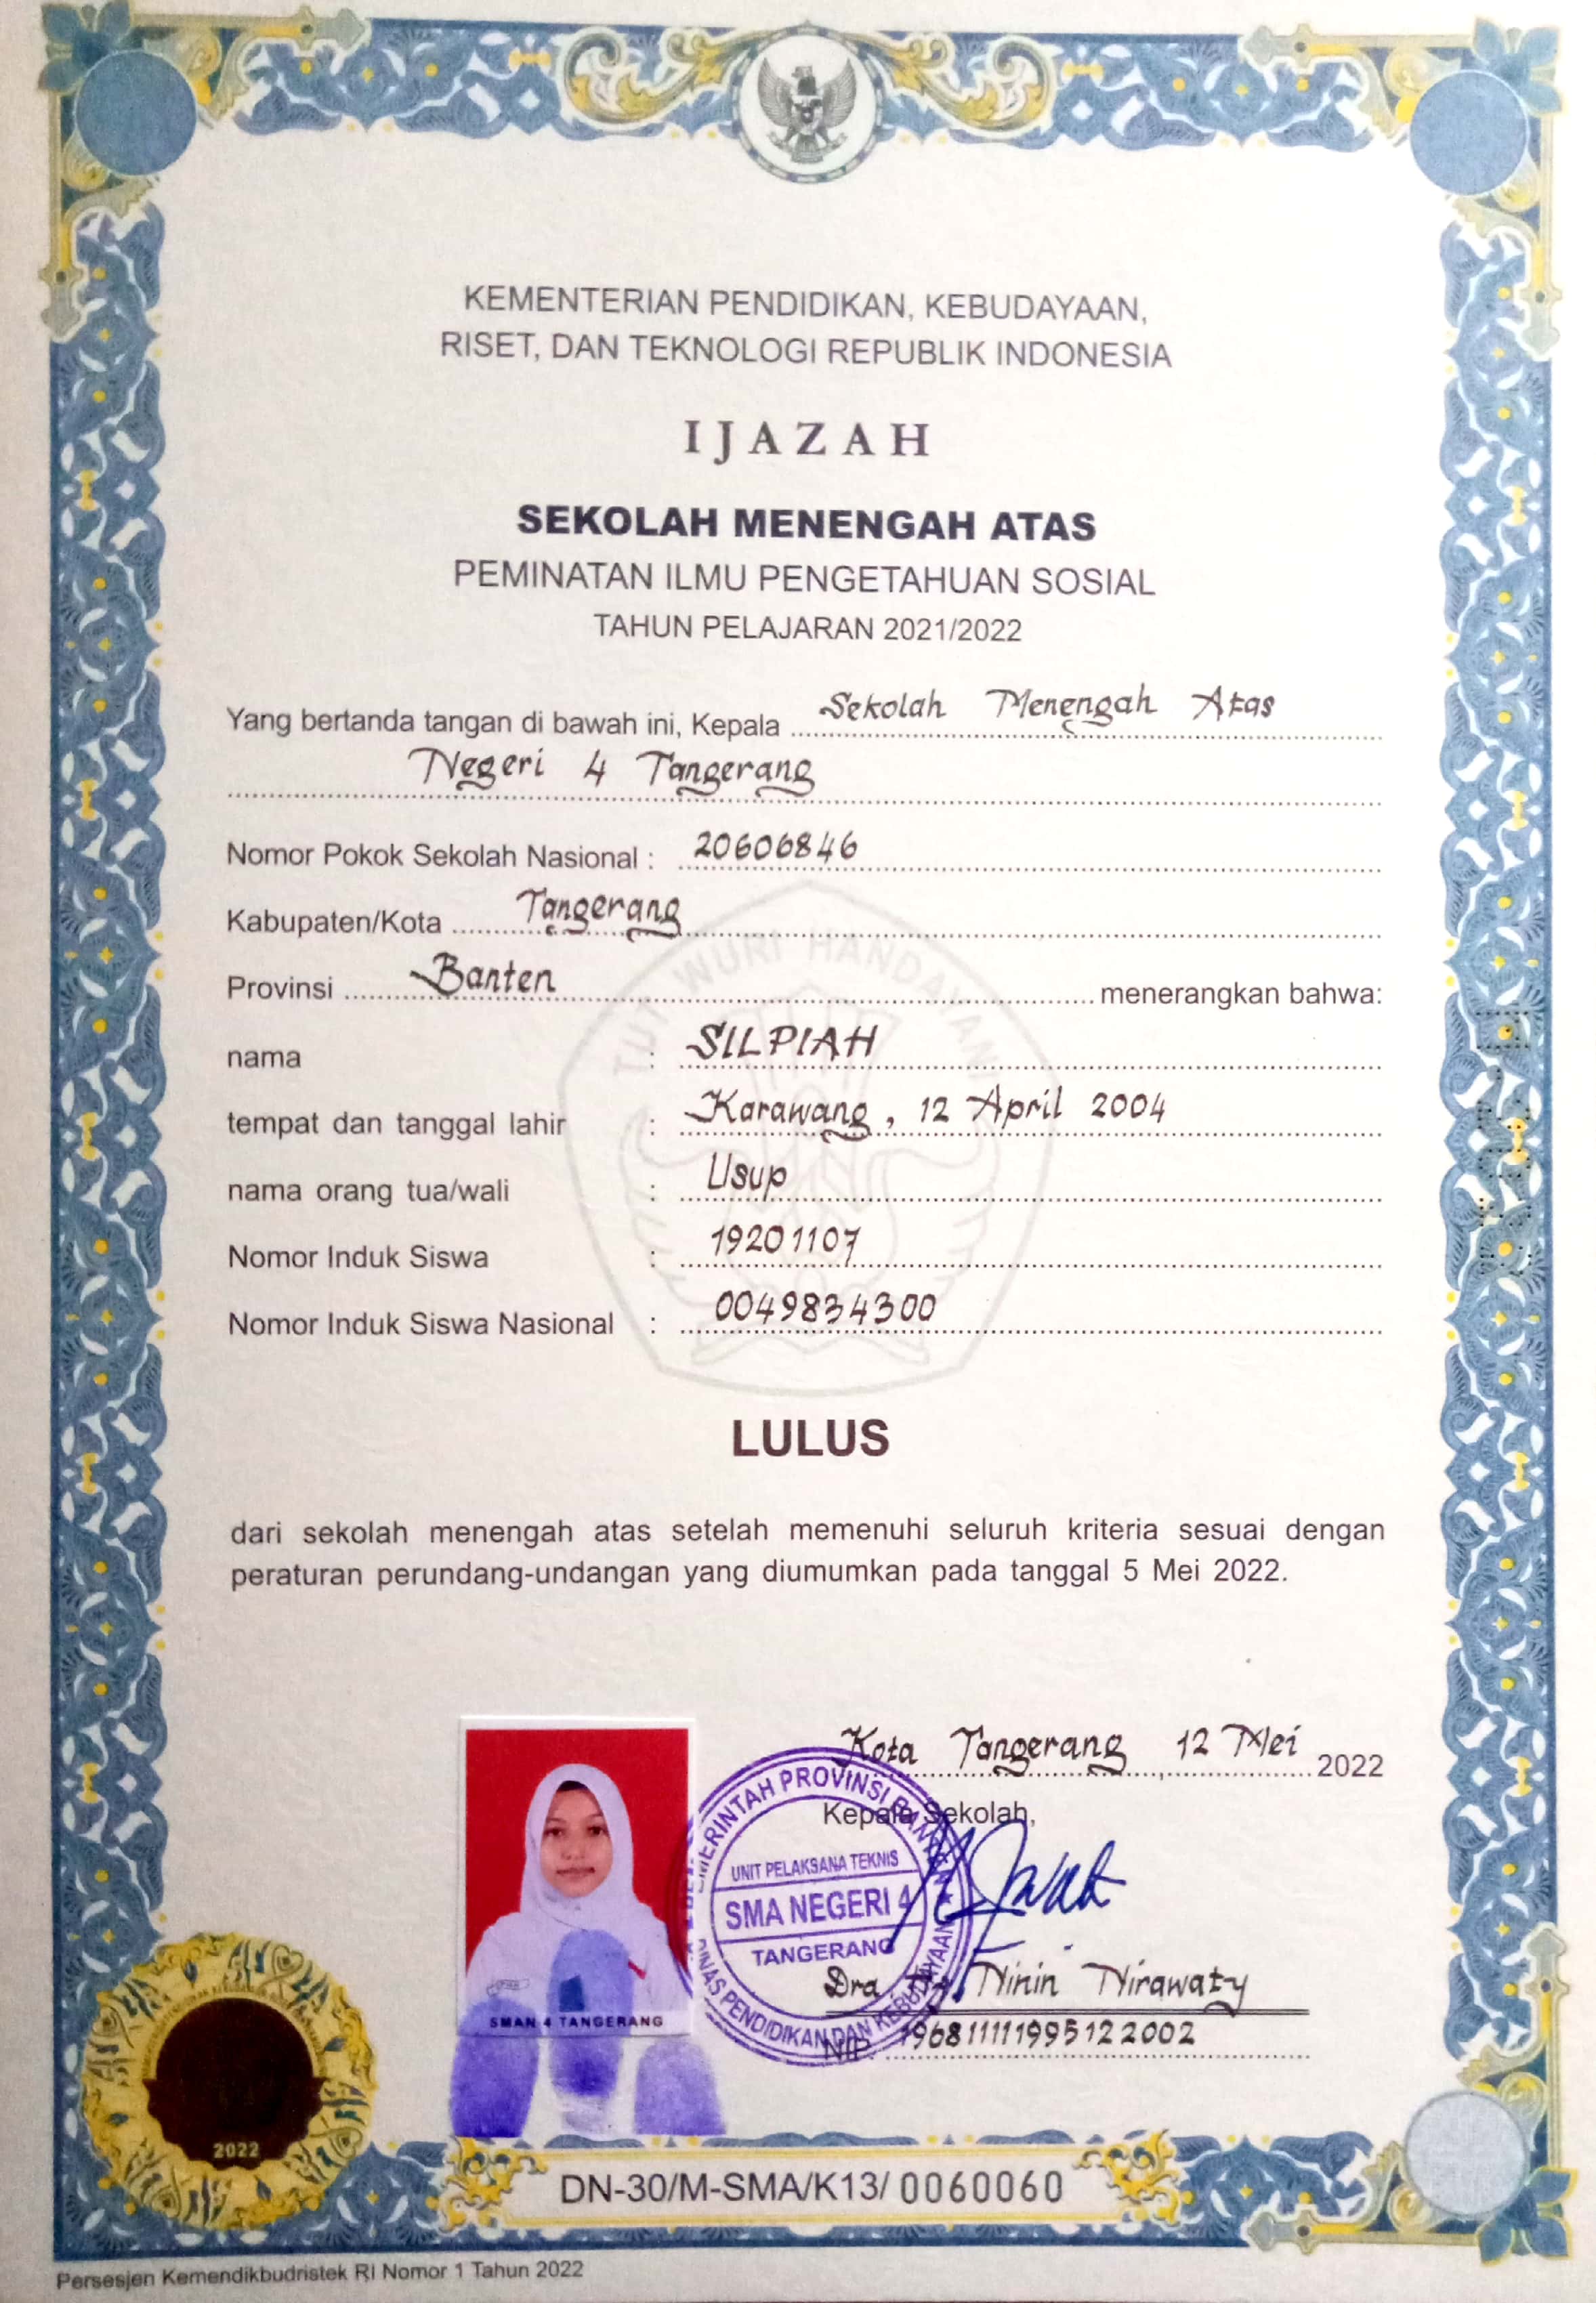 KEMENTERIAN PENDIDIKAN, KEBUDAYAAN,
RISET, DAN TEKNOLOGI REPUBLIK INDONESIA
IJAZAH
SEKOLAH MENENGAH ATAS
PEMINATAN ILMU PENGETAHUAN SOSIAL
TAHUN PELAJARAN 2021/2022
Yang bertanda tangan di bawah ini, Kepala Sekolah Menengah Atas
Negeri 4 Tangerang
Nomor Pokok Sekolah Nasional : 20606846
Kabupaten/Kota Tangerang
Provinsi Banten menerangkan bahwa:
nama : SILPIAH
tempat dan tanggal lahir : Karawang, 12 April 2004
nama orang tua/wali : Usup
Nomor Induk Siswa : 19201107
Nomor Induk Siswa Nasional : 0049834300
TUT WURI HANDAYANI
LULUS
dari sekolah menengah atas setelah memenuhi seluruh kriteria sesuai dengan
peraturan perundang-undangan yang diumumkan pada tanggal 5 Mei 2022.
Kota Tangerang, 12 Mei 2022
Kepala Sekolah,
PEMERINTAH PROVINSI BANTEN
UNIT PELAKSANA TEKNIS
SMA NEGERI 4
TANGERANG
DINAS PENDIDIKAN DAN KEBUDAYAAN
Dra. Ninin Nirawaty
NIP. 196811111995122002
SMAN 4 TANGERANG
2022
DN-30/M-SMA/K13/ 0060060
Persesjen Kemendikbudristek RI Nomor 1 Tahun 2022